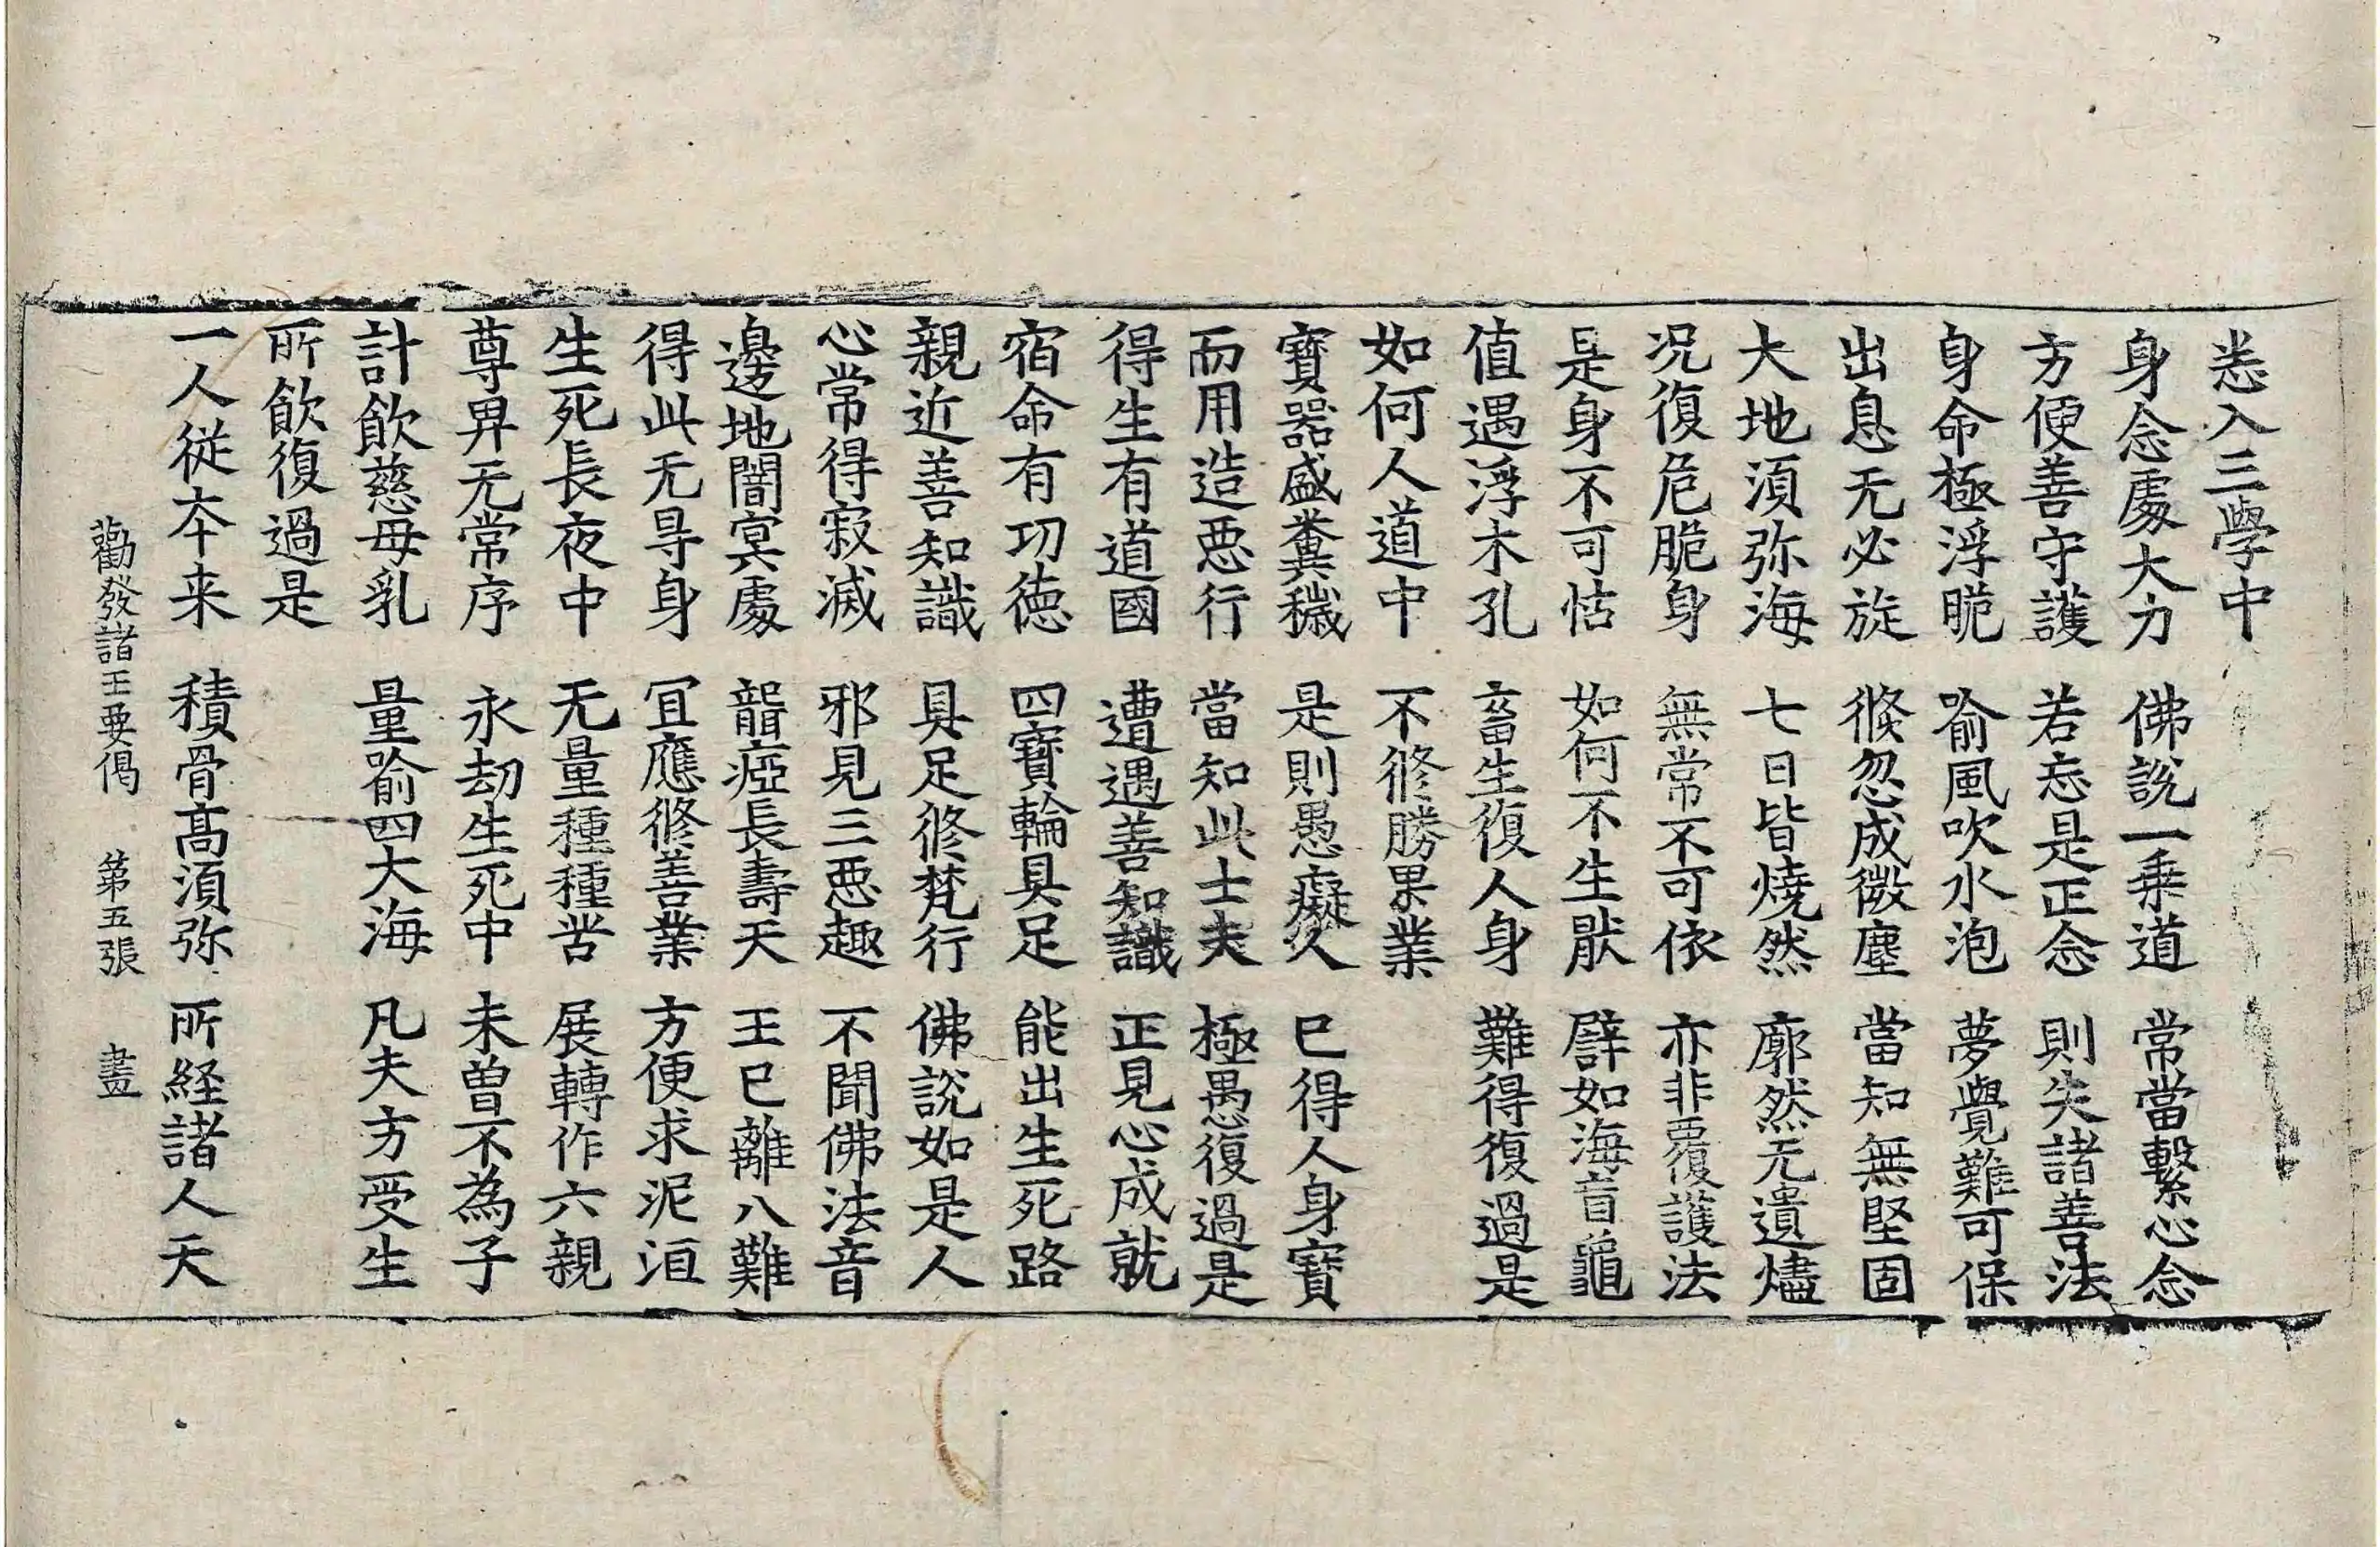 悉入三學中
身念處大力　佛說一乗道　常當繫心念
方便善守護　若忘是正念　則失諸善法
身命極浮脆　喻風吹水泡　夢覺難可保
出息无必旋　倏忽成微塵　當知無堅固
大地須弥海　七日皆燒然　廓然无遺燼
况復危脆身　無常不可依　亦非覆護法
是身不可怙　如何不生猒　譬如海盲龜
值遇浮木孔　畜生復人身　難得復過是
如何人道中　不修勝果業
寶器盛糞穢　是則愚癡久　已得人身寶
而用造惡行　當知此士夫　極愚復過是
得生有道國　遭遇善知識　正見心成就
宿命有功徳　四寶輪具足　能出生死路
親近善知識　具足修梵行　佛說如是人
心常得寂滅　邪見三惡趣　不聞佛法音
邊地闇冥處　聾瘂長壽天　王已離八難
得此无㝵身　冝應修善業　方便求泥洹
生死長夜中　无量種種苦　展轉作六親
尊畀无常序　永劫生死中　未曽不為子
計飲慈母乳　量喻四大海　凡夫方受生
所飲復過是
一人従夲来　積骨髙須弥　所経諸人天
勸發諸王要偈　第五張　畫